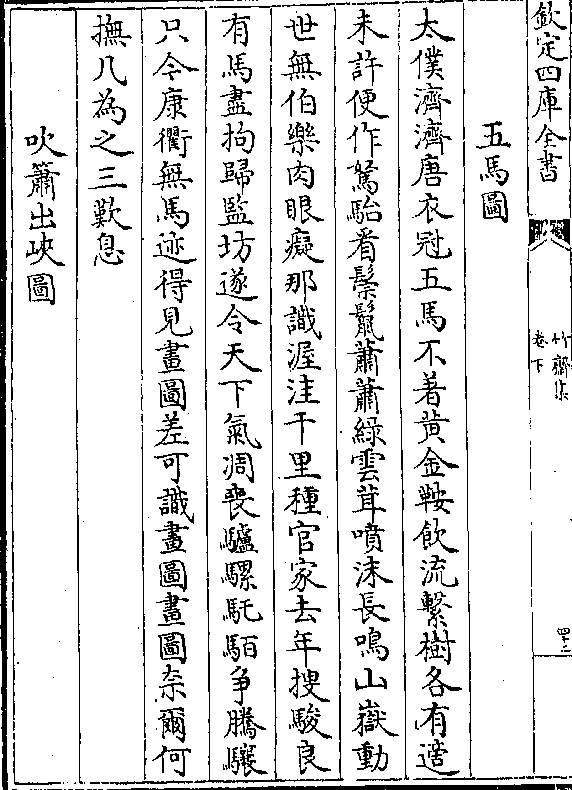 欽定四庫全書
竹齋集
卷下
四十二
五馬圖
太僕濟濟唐衣冠五馬不著黄金鞍飲流繫樹各有適
未許便作駑駘看鬃鬛蕭蕭綠雲茸噴沫長鳴山嶽動
世無伯樂肉眼癡那識渥洼千里種官家去年搜駿良
有馬盡拘歸監坊遂令天下氣凋喪驢騾馲駬爭騰驤
只今康衢無馬迹得見畫圖差可識畫圖畫圖奈爾何
撫几為之三歎息
吹簫出峽圖